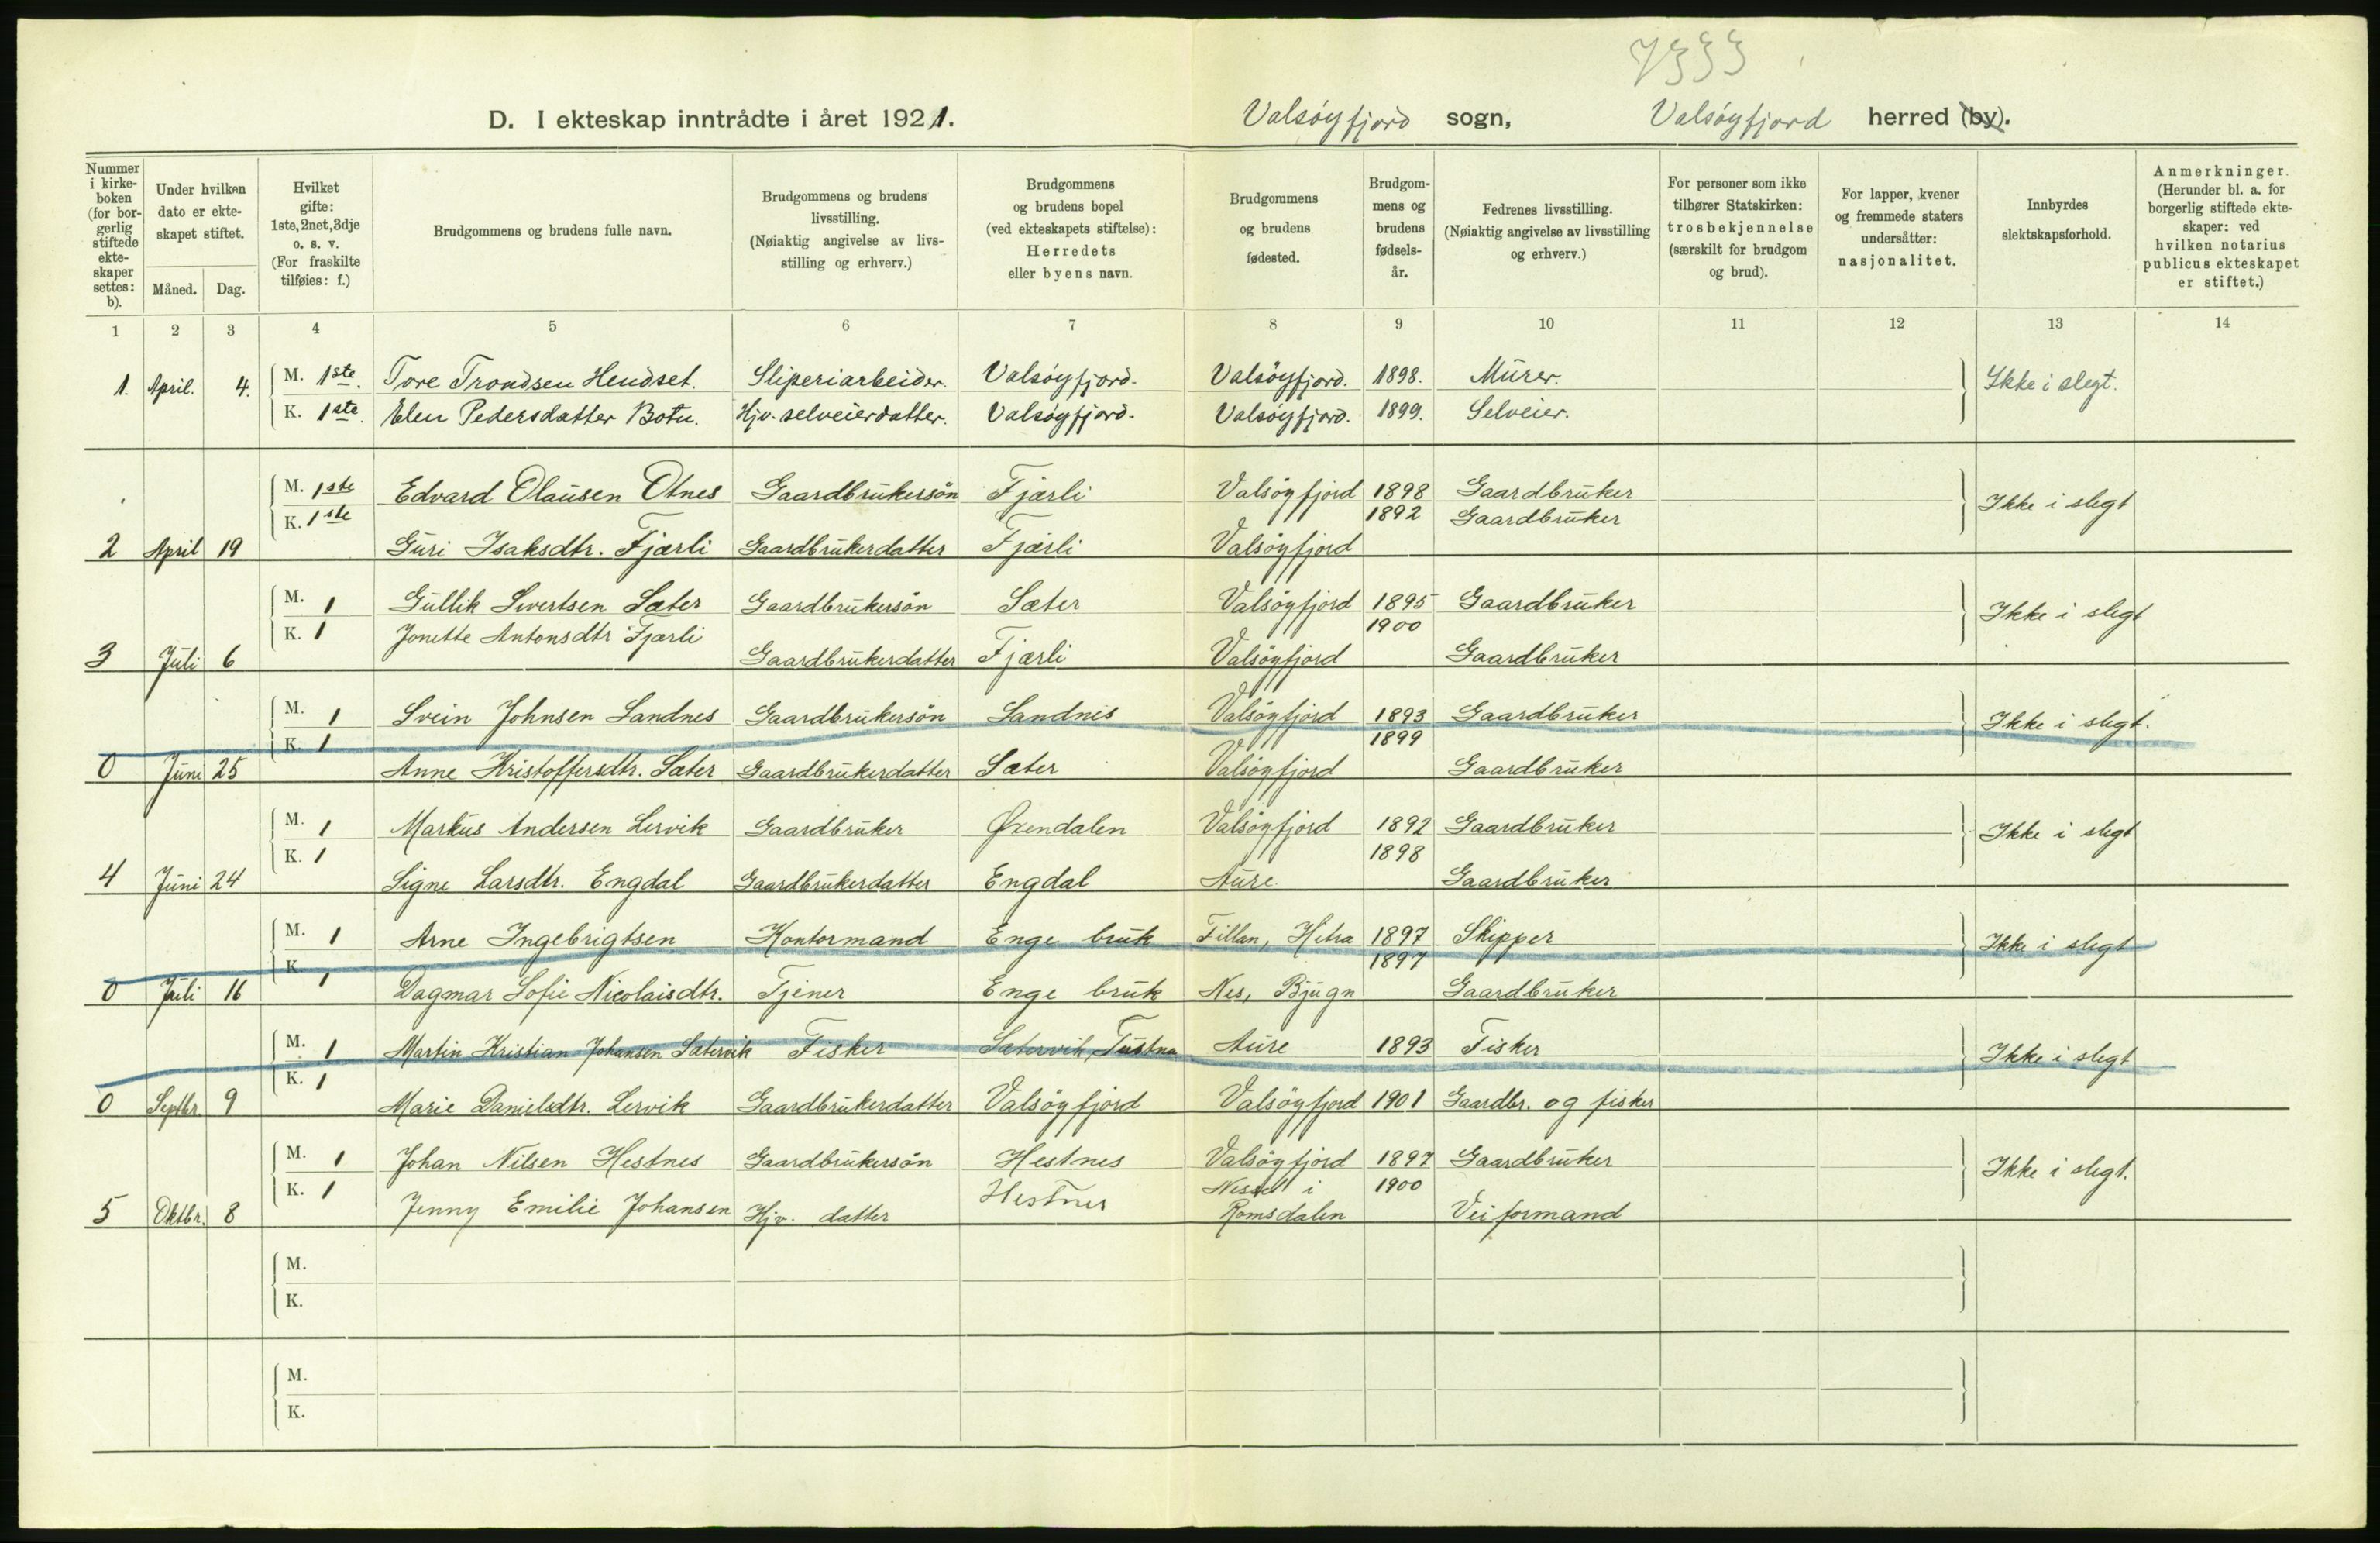 7333
D. I ekteskap inntrådte i året 1921. Valsöyfjord sogn, Valsöyfjord herred (by).
Nummer i kirke-boken (for bor-gerlig stiftede ekte-skaper settes: b).
Under hvilken dato er ekte-skapet stiftet.
Måned. Dag.
Hvilket gifte: 1ste, 2net, 3dje o. s. v. (For fraskilte tilføies: f.)
Brudgommens og brudens fulle navn.
Brudgommens og brudens livsstilling. (Nøiaktig angivelse av livs-stilling og erhverv.)
Brudgommens og brudens bopel (ved ekteskapets stiftelse): Herredets eller byens navn.
Brudgommens og brudens fødested.
Brudgom-mens og brudens fødsels-år.
Fedrenes livsstilling. (Nøiaktig angivelse av livsstilling og erhverv.)
For personer som ikke tilhører Statskirken: trosbekjennelse (særskilt for brudgom og brud).
For lapper, kvener og fremmede staters undersåtter: nasjonalitet.
Innbyrdes slektskapsforhold.
Anmerkninger. (Herunder bl. a. for borgerlig stiftede ekte-skaper: ved hvilken notarius publicus ekteskapet er stiftet.)
1 2 3 4 5 6 7 8 9 10 11 12 13 14
1. April. 4. M. 1ste. Tore Trondsen Hendset. Sliperiarbeider. Valsöyfjord. Valsöyfjord. 1898. Murer. Ikke i slegt.
K. 1ste. Elen Pedersdatter Botn. Hjv. selveierdatter. Valsöyfjord. Valsöyfjord. 1899. Selveier.
M. 1ste Edvard Olausen Otnes Gaardbrukersön Fjærli Valsöyfjord 1898 Gaardbruker Ikke i slegt
2 April 19 K. 1ste Guri Isaksdtr. Fjærli Gaardbrukerdatter Fjærli Valsöyfjord 1892 Gaardbruker
M. 1 Gullik Sivertsen Sæter Gaardbrukersön Sæter Valsöyfjord 1895 Gaardbruker Ikke i slegt
3 Juli 6 K. 1 Jonette Antonsdtr Fjærli Gaardbrukerdatter Fjærli Valsöyfjord 1900 Gaardbruker
M. 1 Svein Johnsen Sandnes Gaardbrukersön Sandnes Valsöyfjord 1893 Gaardbruker Ikke i slegt.
0 Juni 25 K. 1 Anne Kristoffersdtr. Sæter Gaardbrukerdatter Sæter Valsöyfjord 1899 Gaardbruker
M. 1 Markus Andersen Lervik Gaardbruker Øxendalen Valsöyfjord 1892 Gaardbruker Ikke i slegt
4 Juni 24 K. 1 Signe Larsdtr. Engdal Gaardbrukerdatter Engdal Aure 1898 Gaardbruker
M. 1 Arne Ingebrigtsen Kontormand Enge bruk Fillan, Hitra 1897 Skipper Ikke i slegt
0 Juli 16 K. 1 Dagmar Sofie Nicolaisdtr. Tjener Enge bruk Nes, Bjugn 1897 Gaardbruker
M. 1 Martin Kristian Johansen Sætervik Fisker Sætervik, Tustna Aure 1893 Fisker Ikke i slegt
0 Septbr. 9 K. 1 Marie Danielsdtr. Lervik Gaardbrukerdatter Valsöyfjord Valsöyfjord 1901 Gaardbr. og fisker
M. 1 Johan Nilsen Hestnes Gaardbrukersön Hestnes Valsöyfjord 1897 Gaardbruker Ikke i slegt.
5 Oktbr. 8 K. 1 Jenny Emilie Johansen Hjv. datter Hestnes i Romsdalen 1900 Veiformand
M.
K.
M.
K.